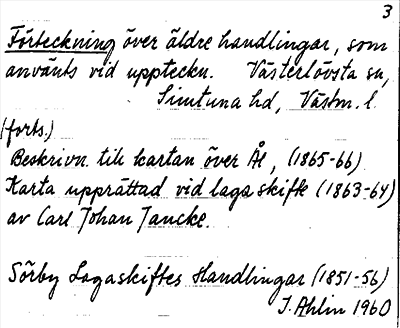 3
Förteckning över äldre handlingar, som
använts vid uppteckn. Västerlövsta sn,
Simtuna hd, Västm. l.
(forts.)
Beskrivn. till kartan över Ål, (1865-66)
Karta upprättad vid laga skifte (1863-64)
av Carl Johan Jancke.
Sörby Lagaskiftes Handlingar (1851-56)
J. Ahlin 1960